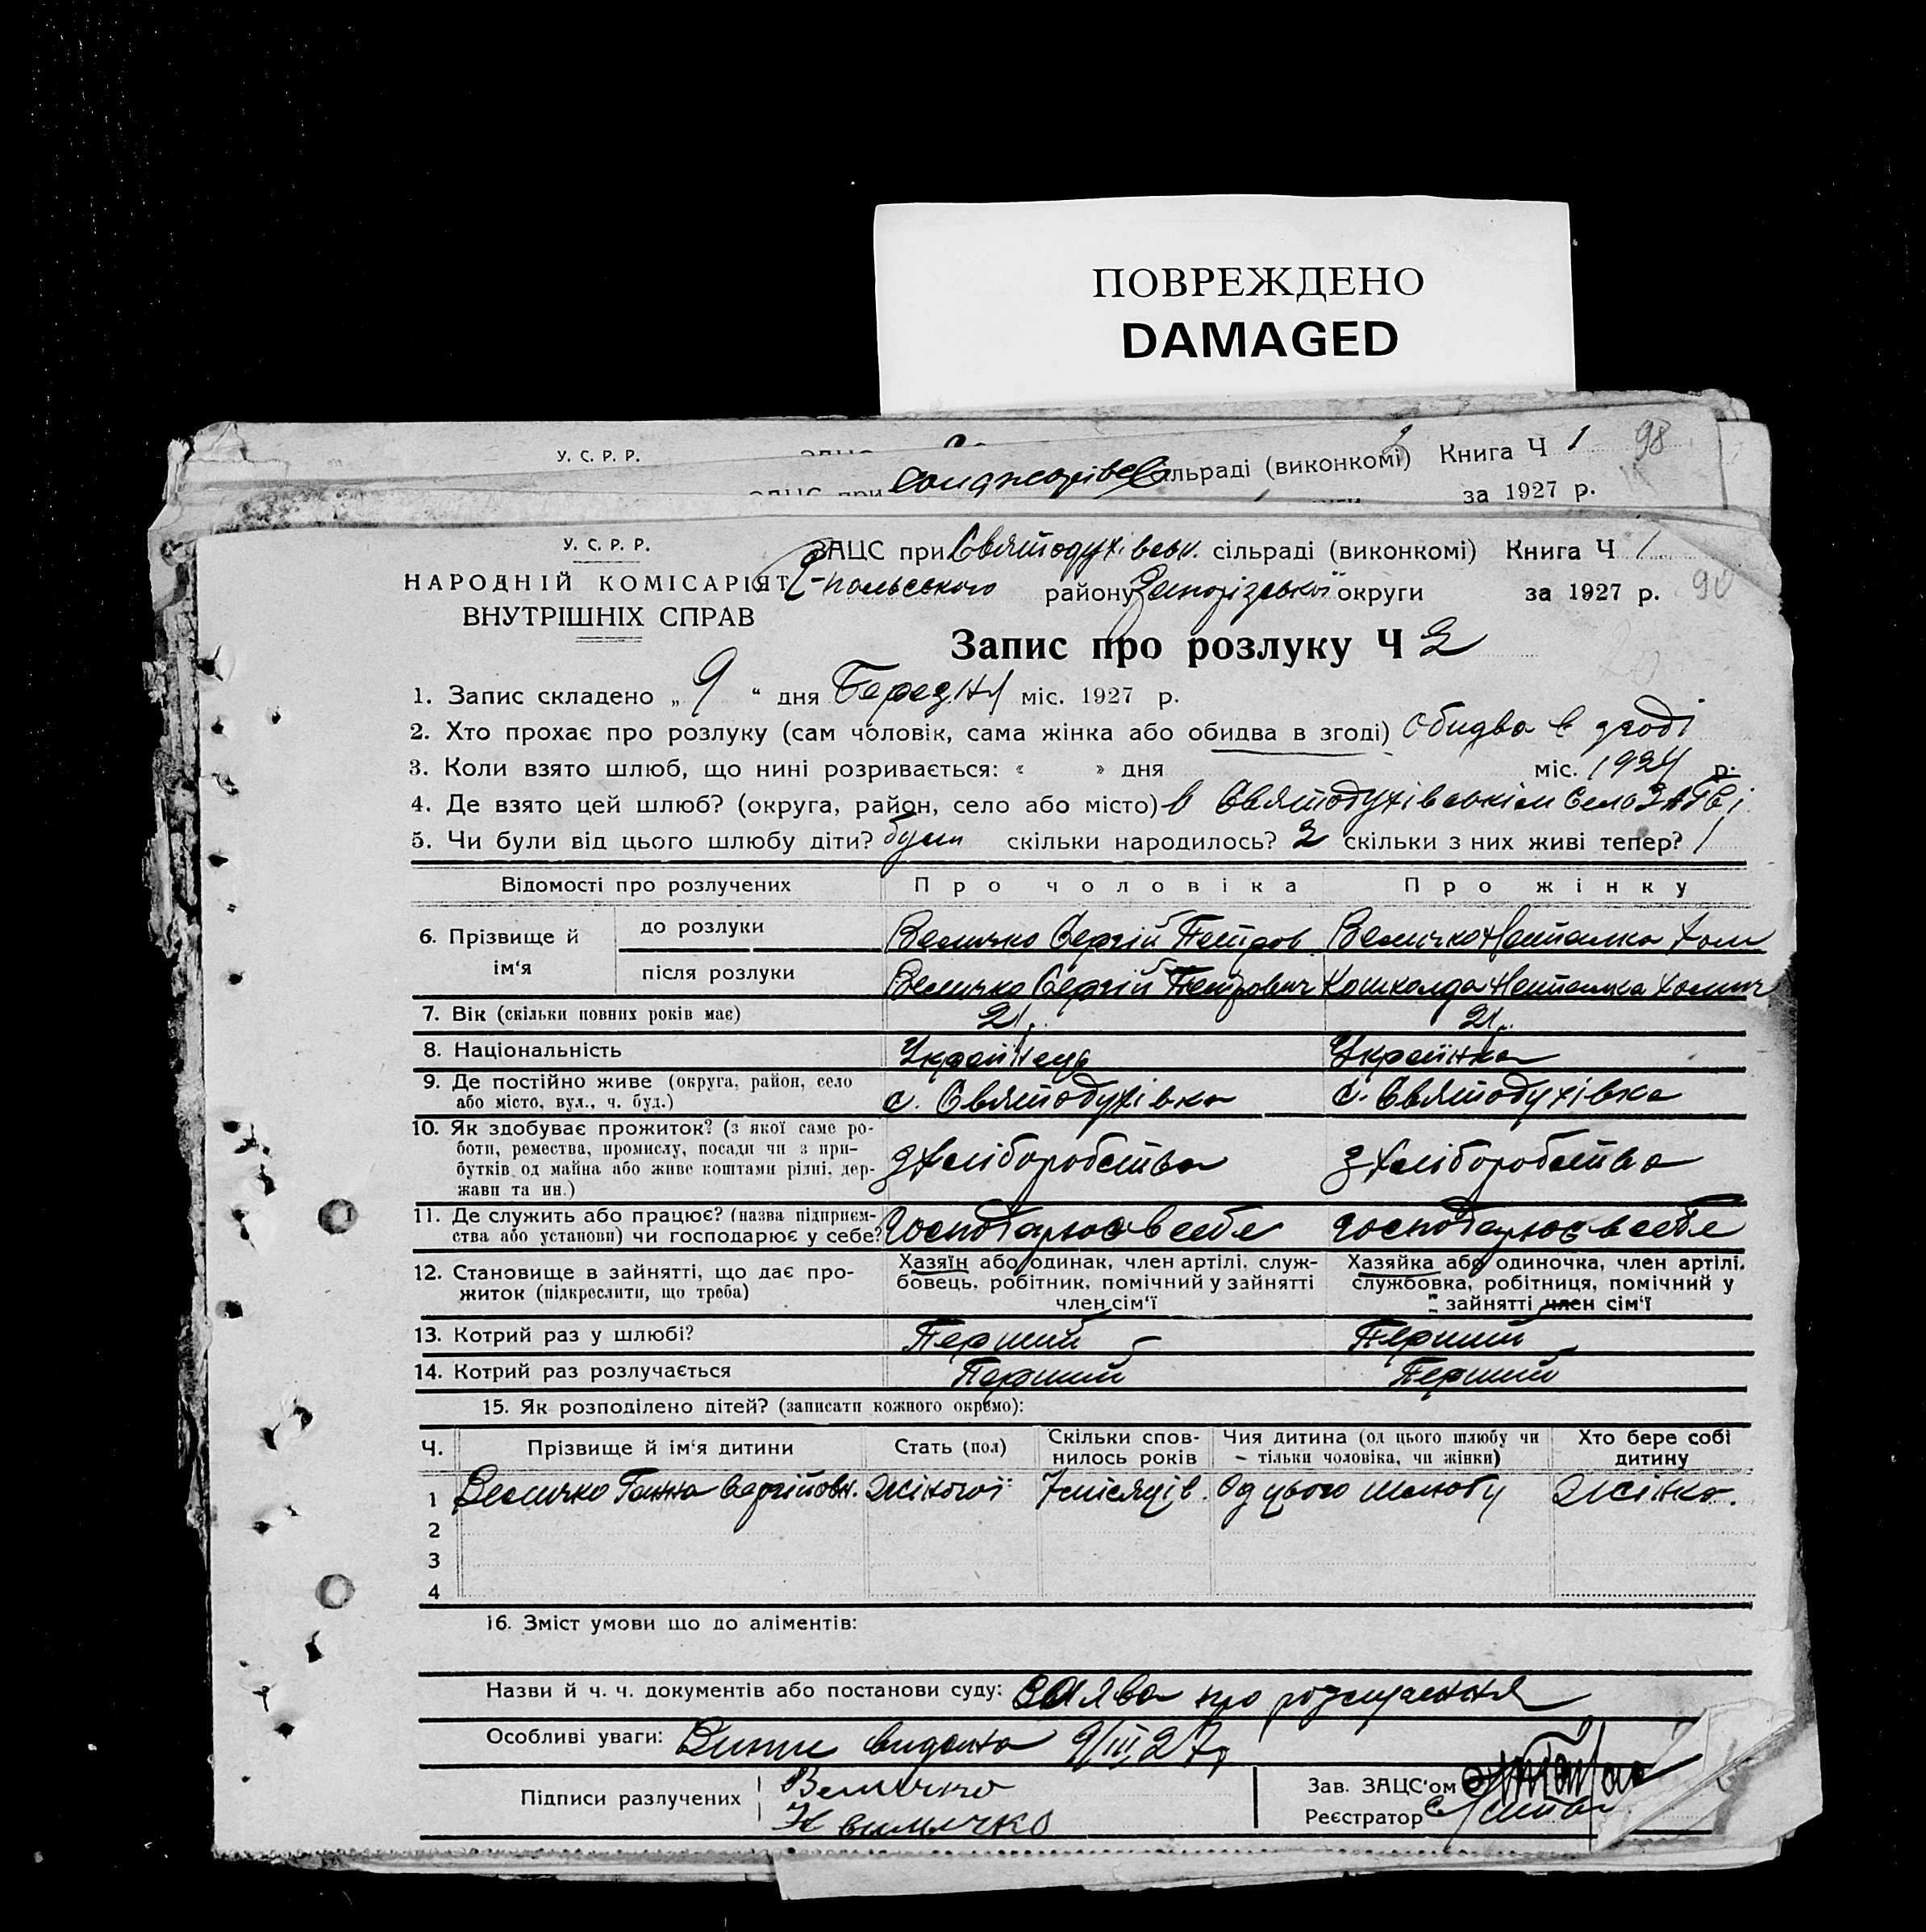 ПОВРЕЖДЕНО
DAMAGED
У. С. Р. Р.
сільраді (виконкомі) Книга Ч 1 98
за 1927 р.
У. С. Р. Р.
ЗАЦС при Святодухівськ. сільраді (виконкомі) Книга Ч 1
НАРОДНІЙ КОМІСАРІЯТ
ВНУТРІШНІХ СПРАВ
польського району Запорізької округи за 1927 р. 90
Запис про розлуку Ч 2
1. Запис складено „ 9 “ дня Березня міс. 1927 р.
2. Хто прохає про розлуку (сам чоловік, сама жінка або обидва в згоді) обидва в згоді
3. Коли взято шлюб, що нині розривається: « » дня міс. 1924 р.
4. Де взято цей шлюб? (округа, район, село або місто) в Святодухівськім
5. Чи були від цього шлюбу діти? були скільки народилось? 2 скільки з них живі тепер? 1
Відомості про розлучених
Про чоловіка
Про жінку
6. Прізвище й ім‘я
до розлуки
Величко Сергій Петров.
Величко Наталка Хом
після розлуки
Величко Сергій Петрович
Кошколда Наталка
7. Вік (скільки повних років має)
21 р.
21 р.
8. Національність
Українець
Українка
9. Де постійно живе (округа, район, село
або місто, вул., ч. буд.)
с. Святодухівка
с. Святодухівка
10. Як здобуває прожиток? (з якої саме ро-
боти, ремества, промислу, посади чи з при-
бутків од майна або живе коштами рідні, дер-
жави та ин.)
з хліборобства
з хліборобства
11. Де служить або працює? (назва підприєм-
ства або установи) чи господарює у себе?
господарює в себе
господарює в себе
12. Становище в зайнятті, що дає про-
житок (підкреслити, що треба)
Хазяїн або одинак, член артілі, служ-
бовець, робітник, помічний у зайнятті
член сім‘ї
Хазяйка або одиночка, член артілі,
службовка, робітниця, помічний у
зайнятті член сім‘ї
13. Котрий раз у шлюбі?
Перший
Перший
14. Котрий раз розлучається
Перший
Перший
15. Як розподілено дітей? (записати кожного окремо):
Ч.
Прізвище й ім‘я дитини
Стать (пол)
Скільки спов-
нилось років
Чия дитина (од цього шлюбу чи
тільки чоловіка, чи жінки)
Хто бере собі
дитину
1 Величко Ганна Сергійовн. жіночої 7 місяців. Од цього шлюбу жінка.
2
3
4
16. Зміст умови що до аліментів:
Назви й ч. ч. документів або постанови суду: заява про розлучення
Особливі уваги: Випис видано 9/III 27 р
Підписи разлучених
Величко
Н Величко
Зав. ЗАЦС‘ом
Реєстратор